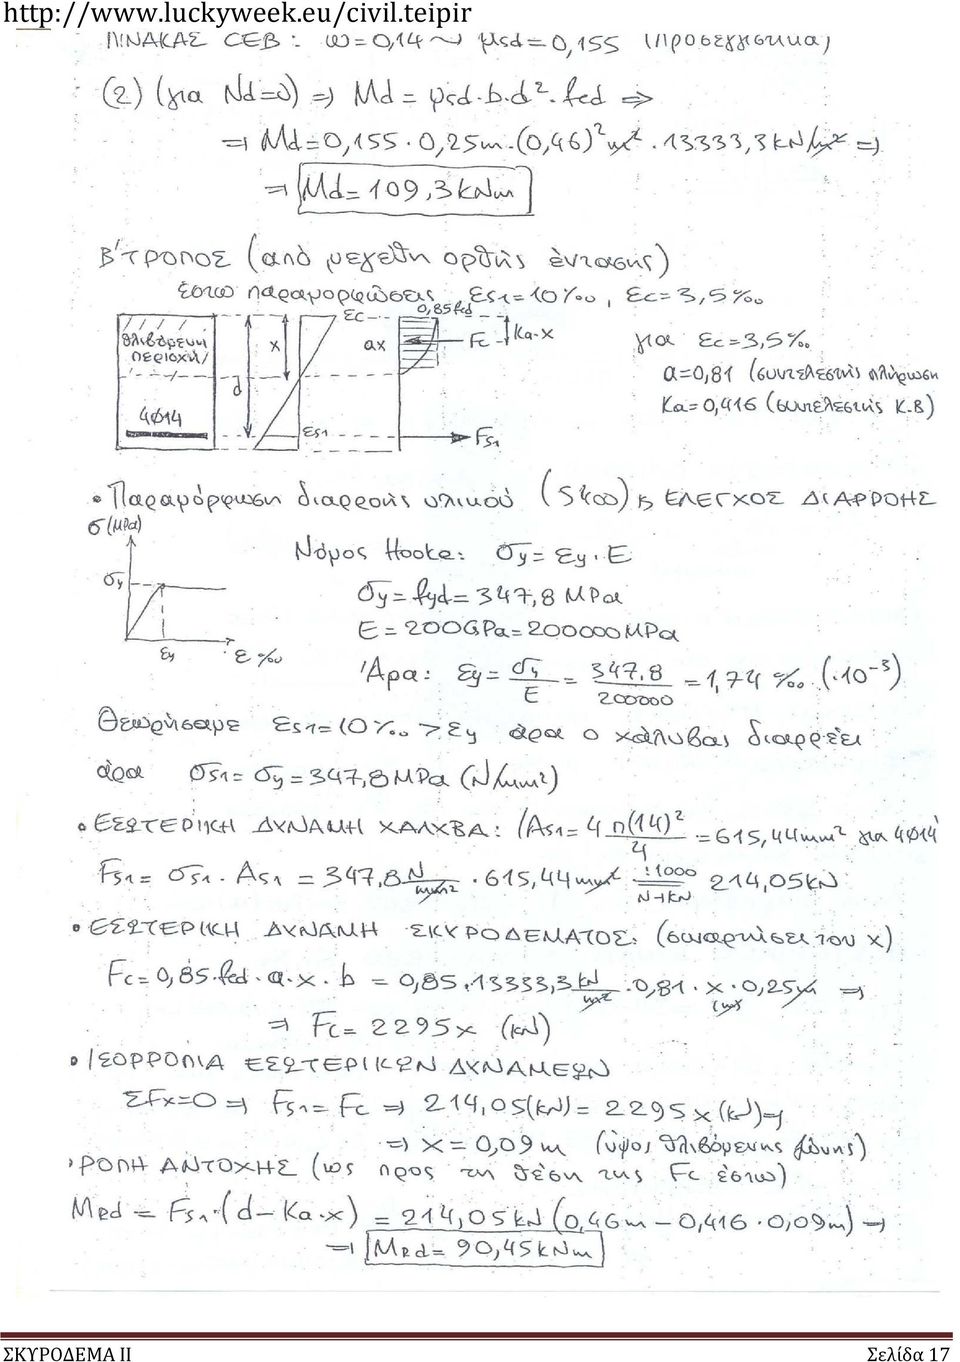 http://www.luckyweek.eu/civil.teipir
ΠΙΝΑΚΑΣ CEB : ω=0,14 ~> μsd=0,155 (προσεγγιστικα)
(2) (για Nd=0) => Md = μsd.b.d². fcd =>
=> Md=0,155 . 0,25m.(0,46)² m² . 13333,3 kN/m² =>
=> Md= 109,3 kNm
Β' ΤΡΟΠΟΣ (από μεγέθη ορθής έντασης)
έστω παραμορφώσεις εs1=10‰, εc=3,5‰
θλιβόμενη περιοχή
4Φ14
x
d
εc
εs1
αx
0,85fcd
Fc
Ka.x
Fs1
για εc=3,5‰
α=0,81 (συντελεστής πλήρωση
Ka=0,416 (συντελεστής Κ.Β)
• Παραμόρφωση διαρροής υλικού (S400) ή ΕΛΕΓΧΟΣ ΔΙΑΡΡΟΗΣ
σ (MPa)
σy
εy
ε ‰
Νόμος Hooke: σy= εy . E
σy= fyd= 347,8 MPa
E = 200GPa=200000MPa
Άρα: εy= σy/E = 347.8/200000 =1,74 ‰ (.10⁻³)
Θεωρήσαμε εs1=10‰ > εy άρα ο χάλυβας διαρρέει
άρα σs1= σy=347,8MPa (N/mm²)
• ΕΣΩΤΕΡΙΚΗ ΔΥΝΑΜΗ ΧΑΛΥΒΑ: (As1= 4 π(14)²/4 =615,44mm² για 4Φ14
Fs1= σs1. As1 = 347,8 N/mm² . 615,44mm² :1000 N→kN 214,05kN
• ΕΣΩΤΕΡΙΚΗ ΔΥΝΑΜΗ ΣΚΥΡΟΔΕΜΑΤΟΣ: (συναρτήσει του x)
Fc=0,85.fcd.α.x. b = 0,85.13333,3 kN/m² .0,81. x (m) . 0,25m =>
=> Fc= 2295x (kN)
• ΙΣΟΡΡΟΠΙΑ ΕΣΩΤΕΡΙΚΩΝ ΔΥΝΑΜΕΩΝ
ΣFx=0 => Fs1= Fc => 214,05(kN)= 2295x(kN) =>
=> x=0,09m (ύψος θλιβόμενης ζώνης)
• ΡΟΠΗ ΑΝΤΟΧΗΣ (ως προς τη θέση της Fc έστω)
MRd = Fs1.(d-Ka.x) = 214,05kN (0,46m - 0,416 . 0,09m) =>
=> MRd= 90,45kNm
ΣΚΥΡΟΔΕΜΑ ΙΙ Σελίδα 17